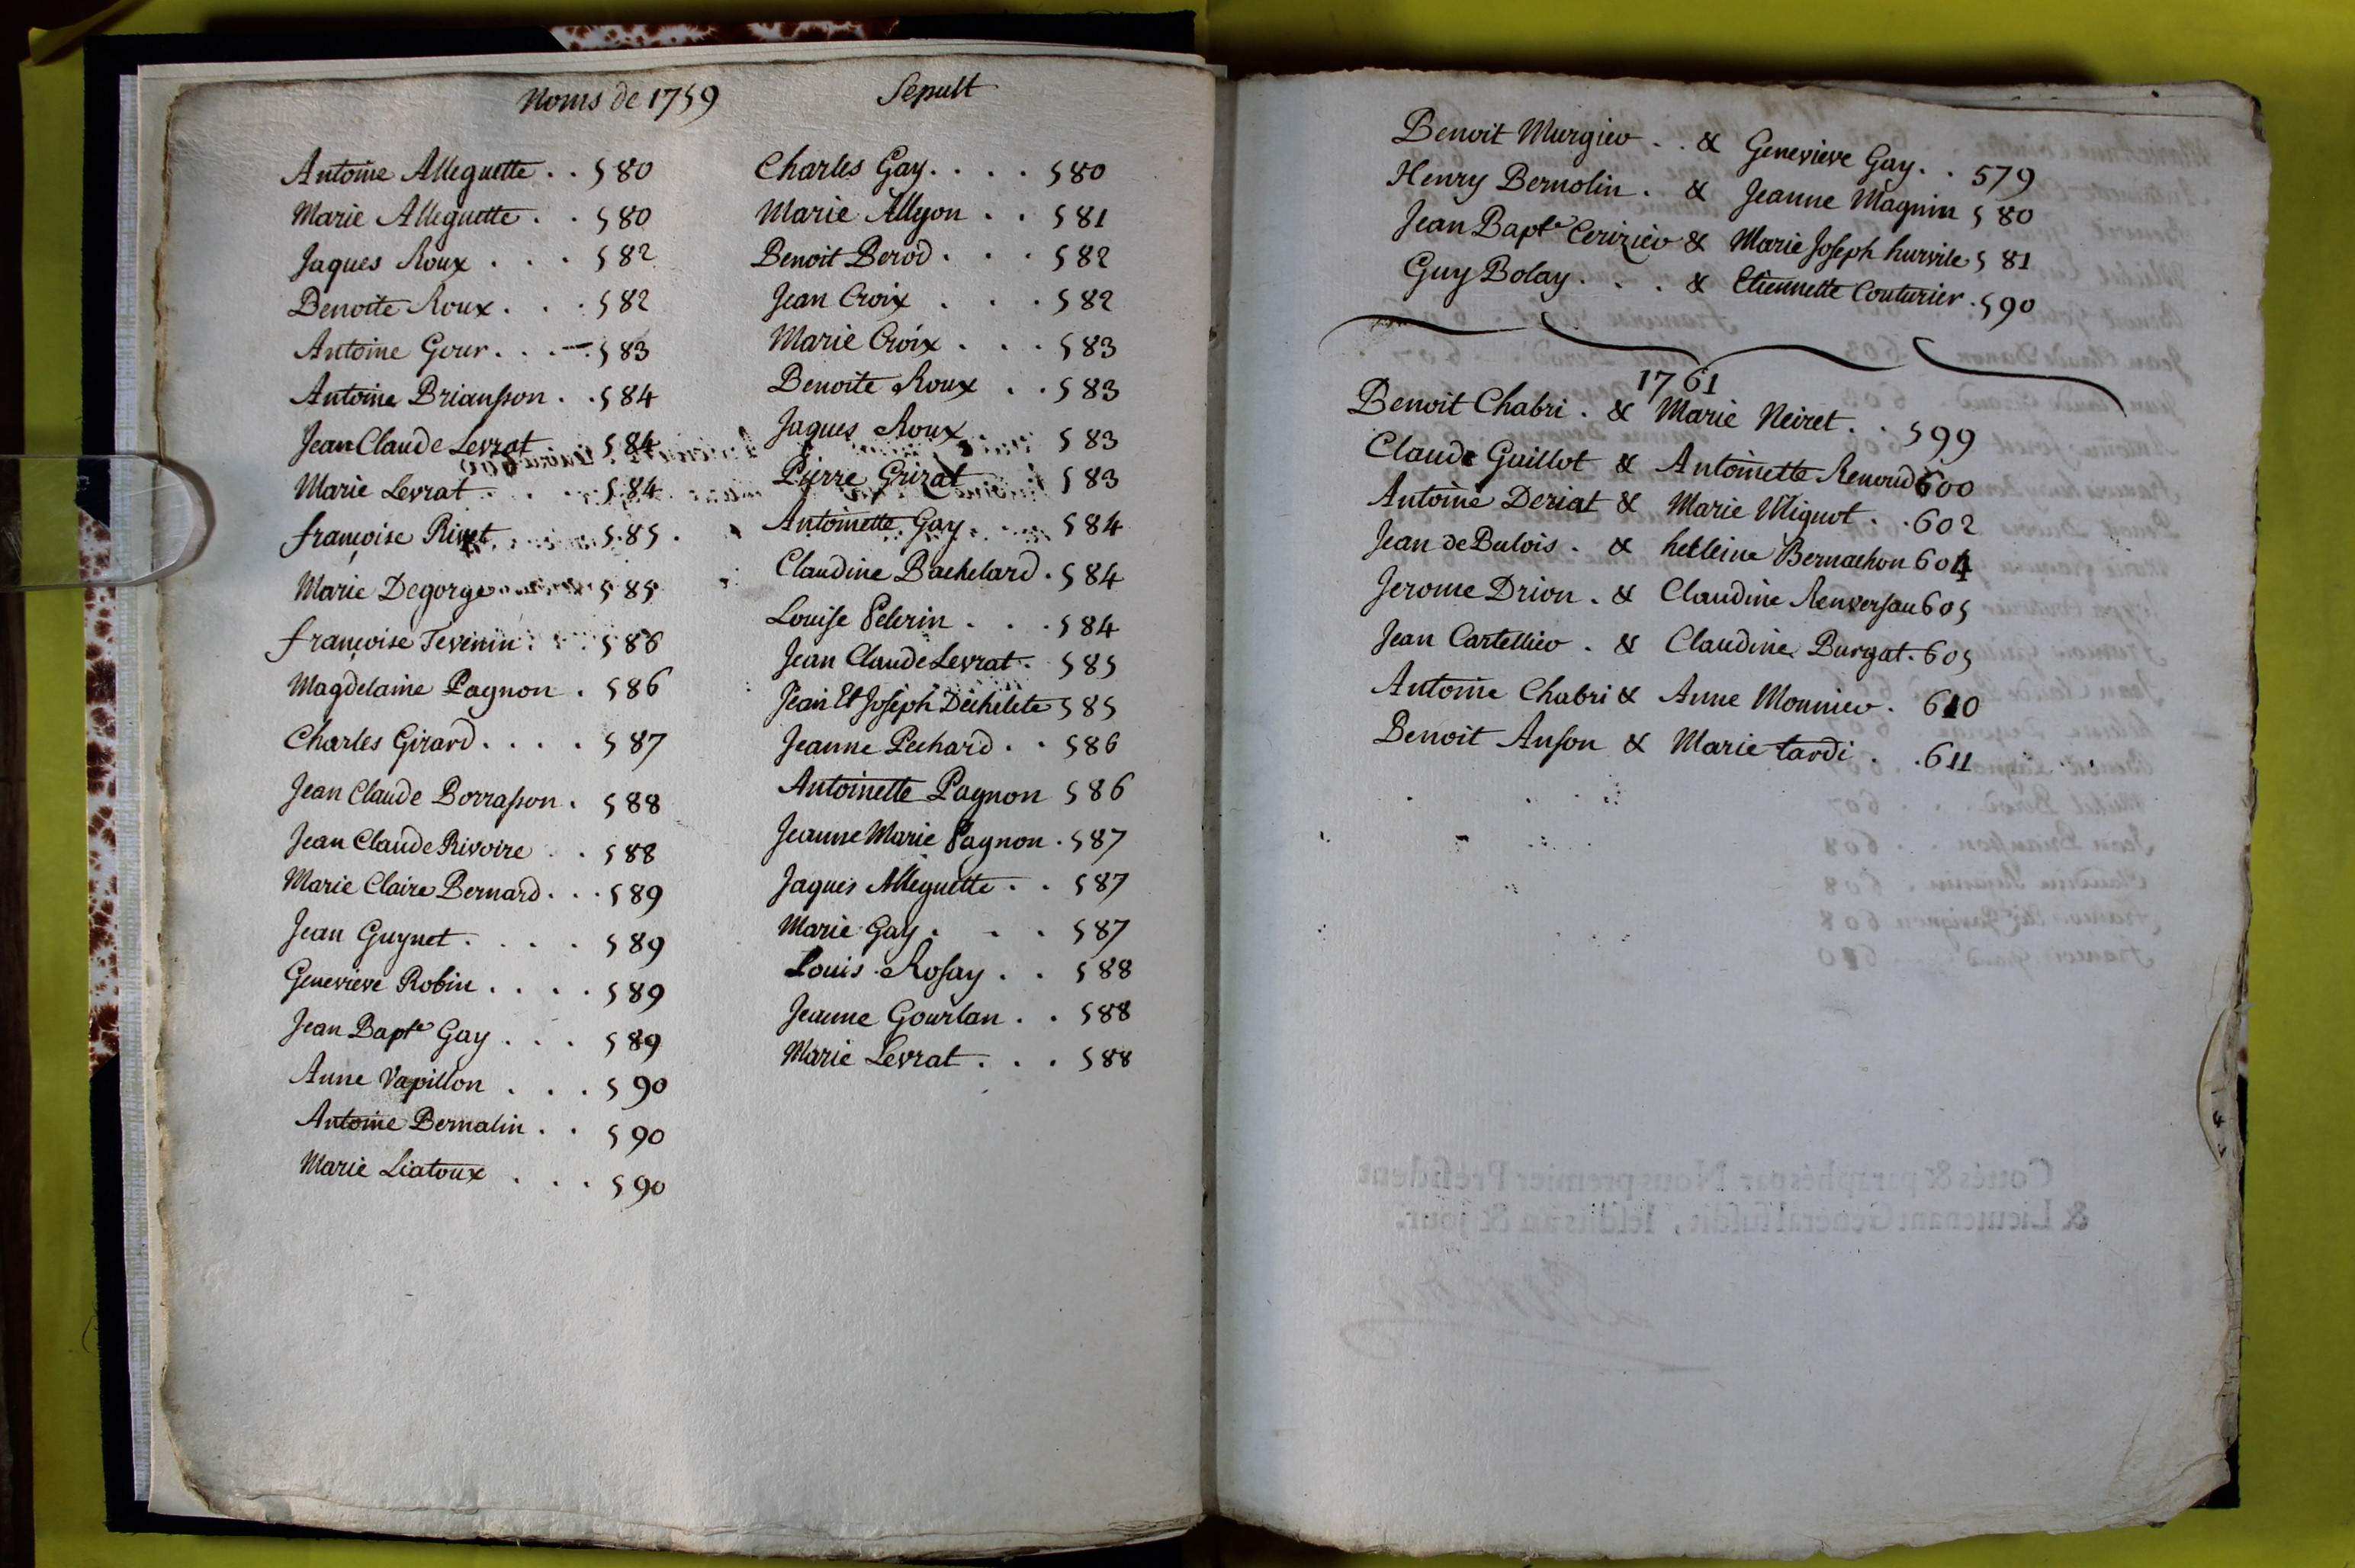 Noms de 1759
Antoine Alleguette . . 580
Marie Alleguette . . 580
Jaques Roux . . . 582
Benoite Roux . . . 582
Antoine Gour . . . 583
Antoine Briansson . . 584
Jean Claude Levrat 584
Marie Levrat . . . 584
françoise Rivet 585
Marie Degorge 585
françoise Tevenin 586
Magdelaine Pagnon . 586
Charles Girard . . . . 587
Jean Claude Borrasson . 588
Jean Claude Rivoire . . 588
Marie Claire Bernard . . . 589
Jean Guynet . . . . 589
Genevieve Robin . . . . 589
Jean Bapte Gay . . . 589
Anne Vapillon . . . 590
Antoine Bernalin . . 590
Marie Liatoux . . . 590
Sepult
Charles Gay . . . . 580
Marie Allyon . . 581
Benoit Berod . . . 582
Jean Croix . . . 582
Marie Croix . . . 583
Benoite Roux . . 583
Jaques Roux . . 583
Pierre Grizat 583
Antoinette Gay . . . 584
Claudine Bachelard . 584
Louise Pelerin . . . 584
Jean Claude Levrat . 585
Jean Et Joseph Dechelete 585
Jeanne Pechard . . 586
Antoinette Pagnon 586
Jeanne Marie Pagnon . 587
Jaques Alleguette . . 587
Marie Gay . . . 587
Louis Rosay . . 588
Jeanne Gourlan . . 588
Marie Levrat . . . 588
Benoit Murgier . . & Genevieve Gay . . 579
Henry Bernolin . & Jeanne Magnin 580
Jean Bapte Cerizier & Marie Joseph 581
Guy Bolay . . . & Etiennette Couturier . 590
1761
Benoit Chabri . & Marie Neiret . . 599
Claude Guillot & Antoinette Renoud 600
Antoine Deriat & Marie Mignot . . 602
Jean deBulois . & helleine Bernachon 604
Jerome Drion . & Claudine 605
Jean Cartellier . & Claudine Burgat . 605
Antoine Chabri & Anne Monnier . 610
Benoit Anson & Marie tardi . . 611